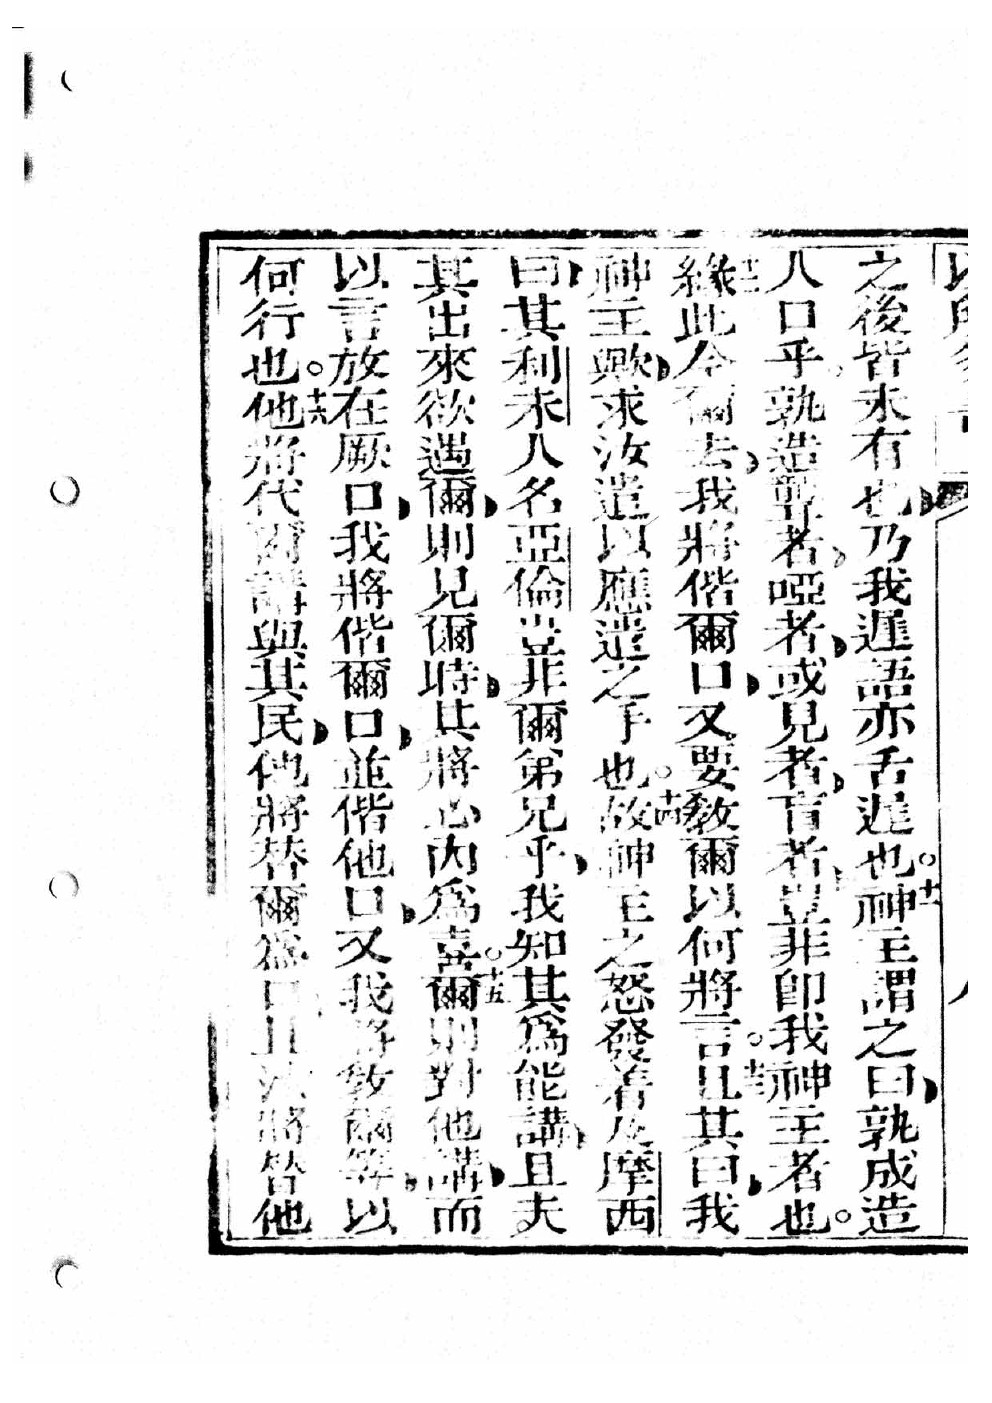 之後皆未有也乃我遲語亦舌遲也。十一神主謂之曰孰成造
人口乎孰造聾者啞者或見者盲者豈非卽我神主者也。
十二緣此今爾去我將偕爾口又要敎爾以何將言。十三且其曰我
神主歟求汝遣以應遣之手也。十四故神主之怒發著及摩西
曰其利未人名亞倫豈非爾弟兄乎我知其爲能講且夫
其出來欲遇爾則見爾時其將必內爲喜。十五爾則對他講而
以言放在厥口我將偕爾口並偕他口又我將敎爾等以
何行也。十六他將代爾講與其民他將替爾爲口且汝將替他